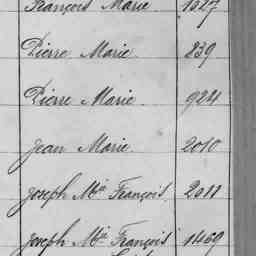 François Marie. 1027
Pierre Marie. 839
Pierre Marie. 924
Jean Marie. 2010
Joseph Mie François. 2011
Joseph Mie François 1469